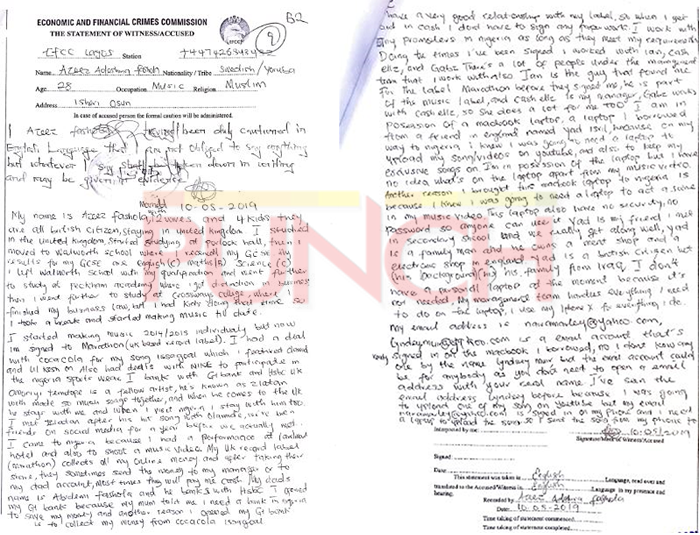 ECONOMIC AND FINANCIAL CRIMES COMMISSION
B2
THE STATEMENT OF WITNESS/ACCUSED
EFCC
9
EFCC Lagos Station
Name Azeez Adeshina Fashola Nationality / Tribe Swedish/Yoruba
Age 28 Occupation Music Religion Muslim
Address Ishan Osun
In case of accused person the formal caution will be administered.
I Azeez Fashola having been duly cautioned in
English Language that I am not obliged to say anything
but whatever I say shall be taken down in writing
and may be given in evidence.
10-05-2019
PUNCH
My name is Azeez Fashola, 2 wives and 4 kids they
are all british citizen, staying in united kingdom. I situated
in the united kingdom, started studying at porlock hall, then
moved to walworth school where I received my GCSE
results for my GCSE are english(C) maths(B) Science(B)
I left walworth school with my qualification and went further
to study at peckham academy where i got distinction in business
then I went further to study at crossways college, where I
finished my business law, but I had kids along that time so
I took a break and started making music till date.
I started making music 2014/2015 individually but now
im signed to Marathon(uk based record label). I had a deal
with cocacola for my song issagoal which i featured olamide
and lil kesh. Also had deals with NIKE to participate in
the nigeria sports wears. I bank with Gtbank and Hsbc UK
Omoniyi Temidope is a fellow artist, he's known as zlatan
with made so much songs together, and when he comes to the UK
he stays with me and when I visit nigeria I stay with him too.
I met zlatan after his hit song with Olamide, we've been
friends on social media for a year before we actually met.
I came to nigeria because I had a performance at
hotel and also to shoot a music video. My UK record label
(Marathon) collects all my online money and after taking their
share, they sometimes send the money to my manager or to
my dad account, most times they will pay me cash. My dads
name is Fashola and he banks with Hsbc. I opened
my Gt bank because my mum told me I need a bank in nigeria
to save my money and another reason I opened my Gt bank
is to collect my money from cocacola issagoal
I have a very good relationship with my label, so when I get
paid in cash I dont have to sign any paperwork. I work with
any promoters in nigeria as long as they meet my requirements
During the times i've been signed I worked with Ian, cash
elle, and Gabz. There's a lot of people under the management
team that I work with also. Ian is the guy that found me
for the label Marathon before they signed me, he is part
of the music label, and cash elle is my manager, Gabz works
with cash elle, so she does a lot for me too. I am in
possession of a macbook laptop, a laptop I borrowed
from a friend in england named yad isil, because on my
way to nigeria i knew I was going to need a laptop to
upload my song/videos on youtube, and also to keep my
exclusive songs on. Im in possession of the laptop but I have
no idea what's on the laptop apart from my music video.
Another reason I brought the macbook laptop to nigeria is
because I knew I was going to need a laptop to act a scene
in my music video. This laptop also have no security, no
password so anyone can use it. Yad is my friend I met
in secondary school and we usually get along well, yad
is a family man and he owns a meat shop and a
electronic shop in england. Yad is a british citizen but
his background(his) his family from iraq. I don't
have a personal laptop at the moment because it's
not needed, my management team handles everything I need
to do on the laptop, I use my Iphone X for everything i do.
My email address is nairamarley@yahoo.com,
is a email account that's
only signed in on the macbook I borrowed, no I dont know any
one by the name lyndsey but the email account could
be for anybody as you dont need to open a email
address with your real name. I've seen the
email address lyndsey before because i was going
to upload one of my song on youtube but my email
nairamarley@yahoo.com is signed in on my phone and I need
a laptop to upload the song so I sent the song from my phone to
10-05-2019
Interpreted by me:
Signature/Mark of Witness/Accused
Signed:
Date:
This statement was taken in English Language, read over and
translated to the Accused/Witness in English Language in my presence and
hearing.
Recorded by Azeez Adeshina Fashola
Date: 10-05-2019
Time taking of statement commenced
Time taking of statement completed